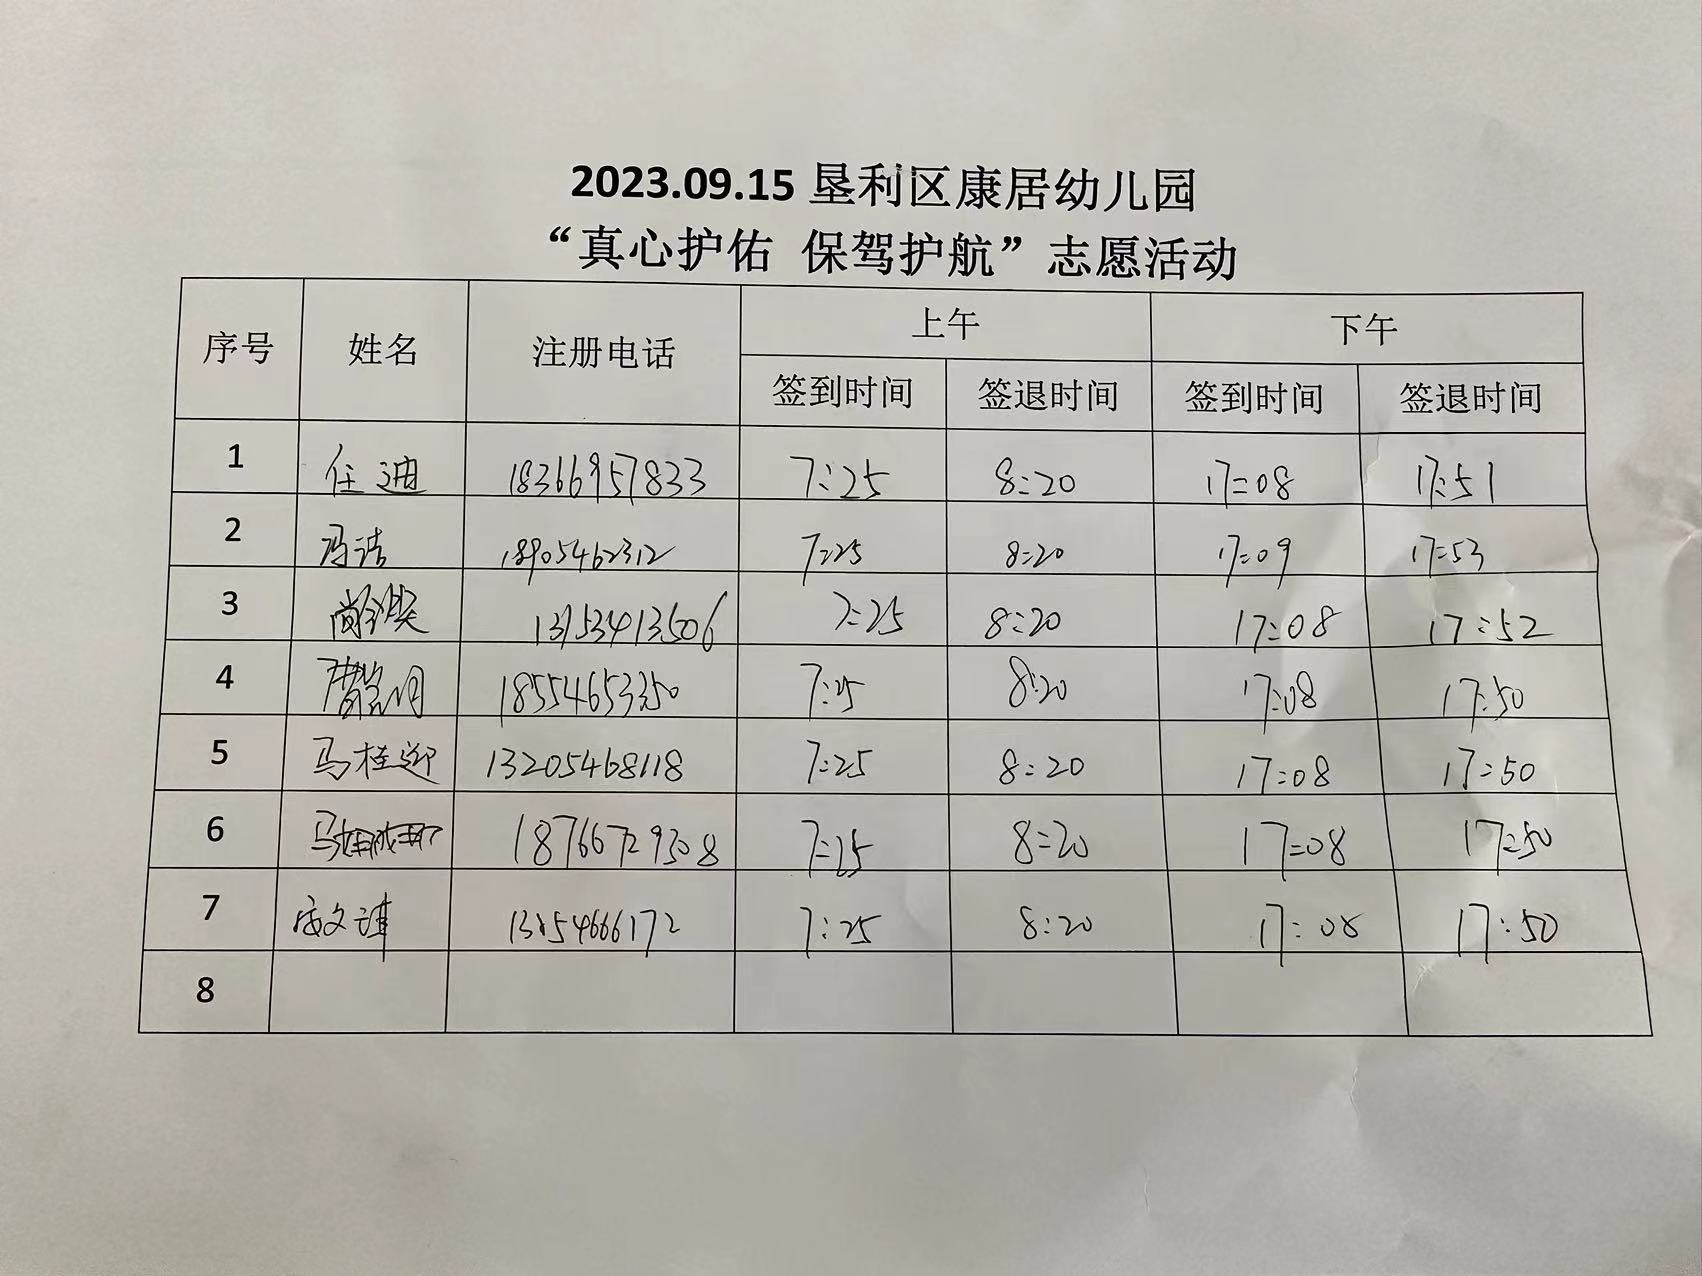 2023.09.15 垦利区康居幼儿园
“真心护佑 保驾护航”志愿活动
序号 姓名 注册电话 上午 下午
签到时间 签退时间 签到时间 签退时间
1 任迪 18366957833 7:25 8:20 17:08 17:51
2 冯洁 18905462312 7:25 8:20 17:09 17:53
3 13153413506 7:25 8:20 17:08 17:52
4 18554653350 7:25 8:20 17:08 17:50
5 马桂迎 13205468118 7:25 8:20 17:08 17:50
6 马 18766729308 7:25 8:20 17:08 17:50
7 7:25 8:20 17:08 17:50
8